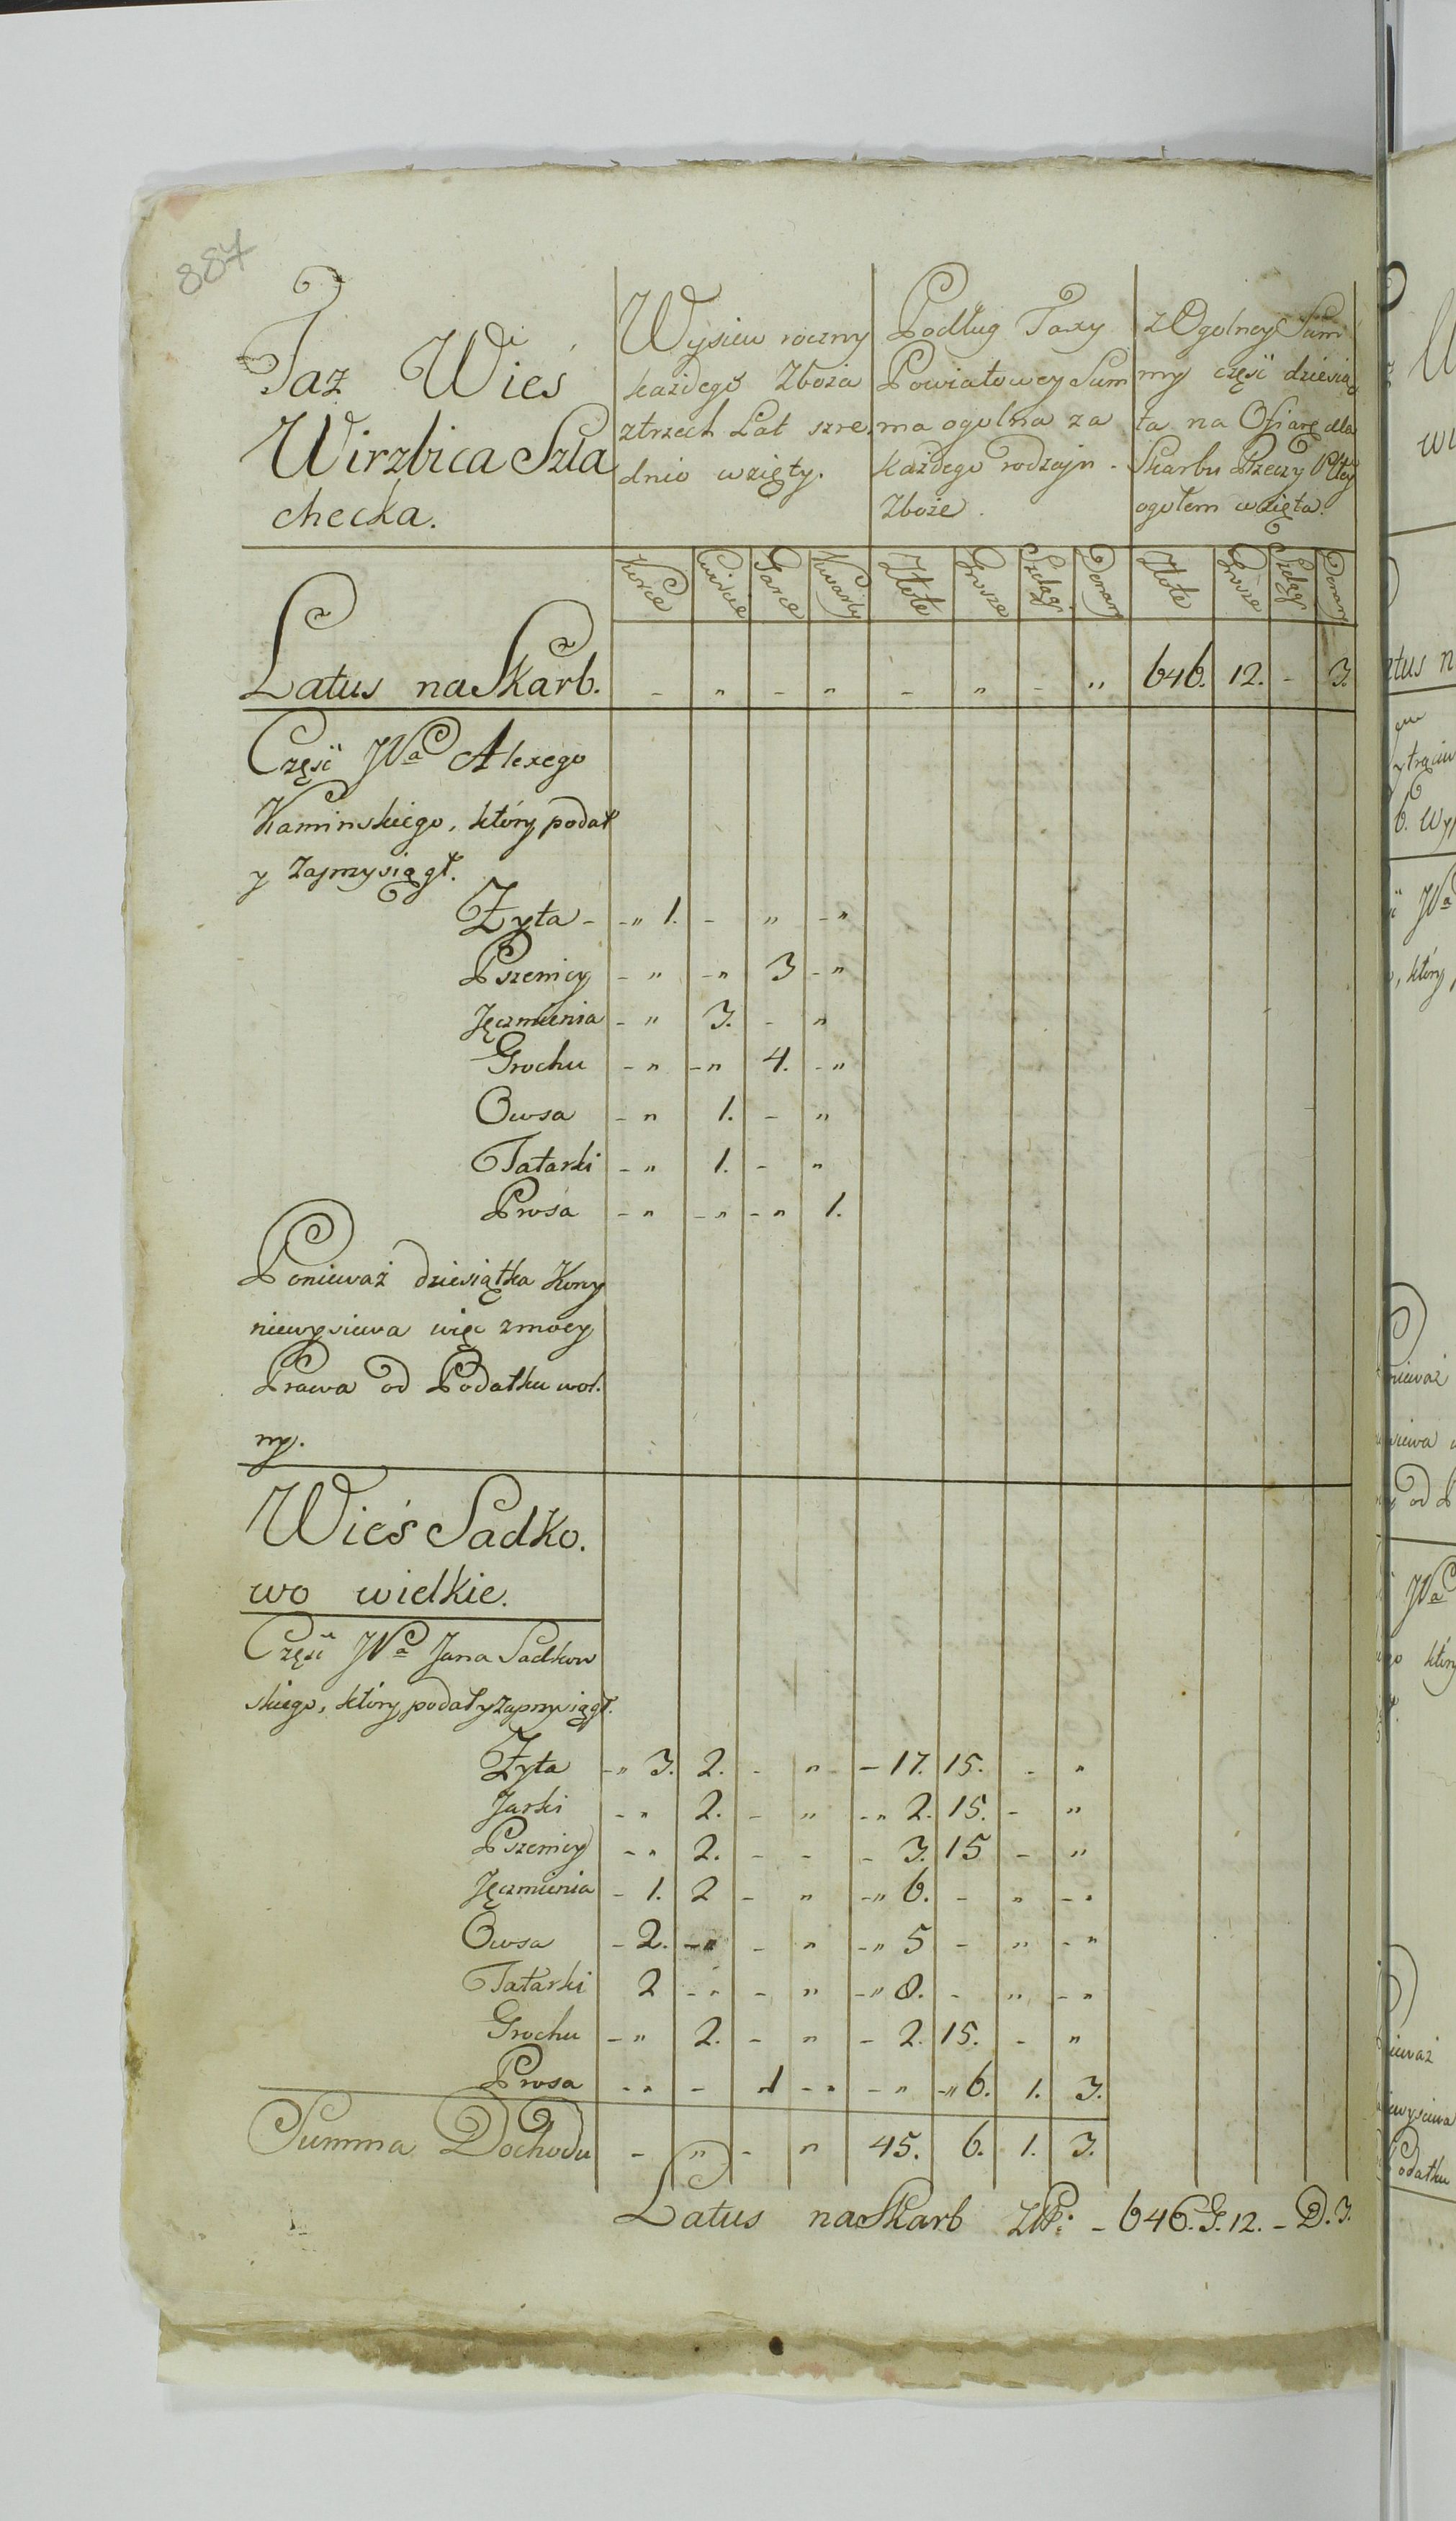 887
Taz Wieś
Wirzbica Szla
checka.
Wysiew roczny
każdego Zboża
z trzech Lat szre
dnio wzięty.
Podług Taxy
Powiatowey Sum
ma ogolna za
każdego rodzaju
Zboże.
z Ogolney Sum
my część dziesią
ta na Ofiarę dla
Skarbu Rzeczy Pltey
ogołem wzięta.
Korce Cwierci Garce Kwarty Złote Grosze Szelągi Denary Złote Grosze Szelągi Denary
Latus na Skarb. - " - " - " - " 646. 12. - 3.
Część JPa Alexego
Kaminskiego, który podał
y zaprzysiągł.
Żyta - - " 1. - " - "
Pszenicy - " - " 3 - "
Jęczmienia - " 3. - "
Grochu - " - " 4. - "
Owsa - " 1. - "
Tatarki - " 1. - "
Prosa - " - " - " 1.
Ponieważ dziesiątka Korcy
niewysiewa więc z mocy
Prawa od Podatku wol.
ny.
Wieś Sadko.
wo wielkie.
Część JPa Jana Sadkow
skiego, który podał y zaprzysiągł.
Żyta - " 3. 2. - " - 17. 15. - "
Jarki - " 2. - " - " 2. 15. - "
Pszenicy - " 2. - - - 3. 15 - "
Jęczmienia - 1. 2 - " - " 6. - " - "
Owsa - 2. - " - " - " 5 - " - "
Tatarki 2 - " - " - " 8. - " - "
Grochu - " 2. - " - 2. 15. - "
Prosa - " - 1 - " - " - " 6. 1. 3.
Summa Dochodu - " - " 45. 6. 1. 3.
Latus na Skarb ZłP: - 646. G. 12. - D. 3.